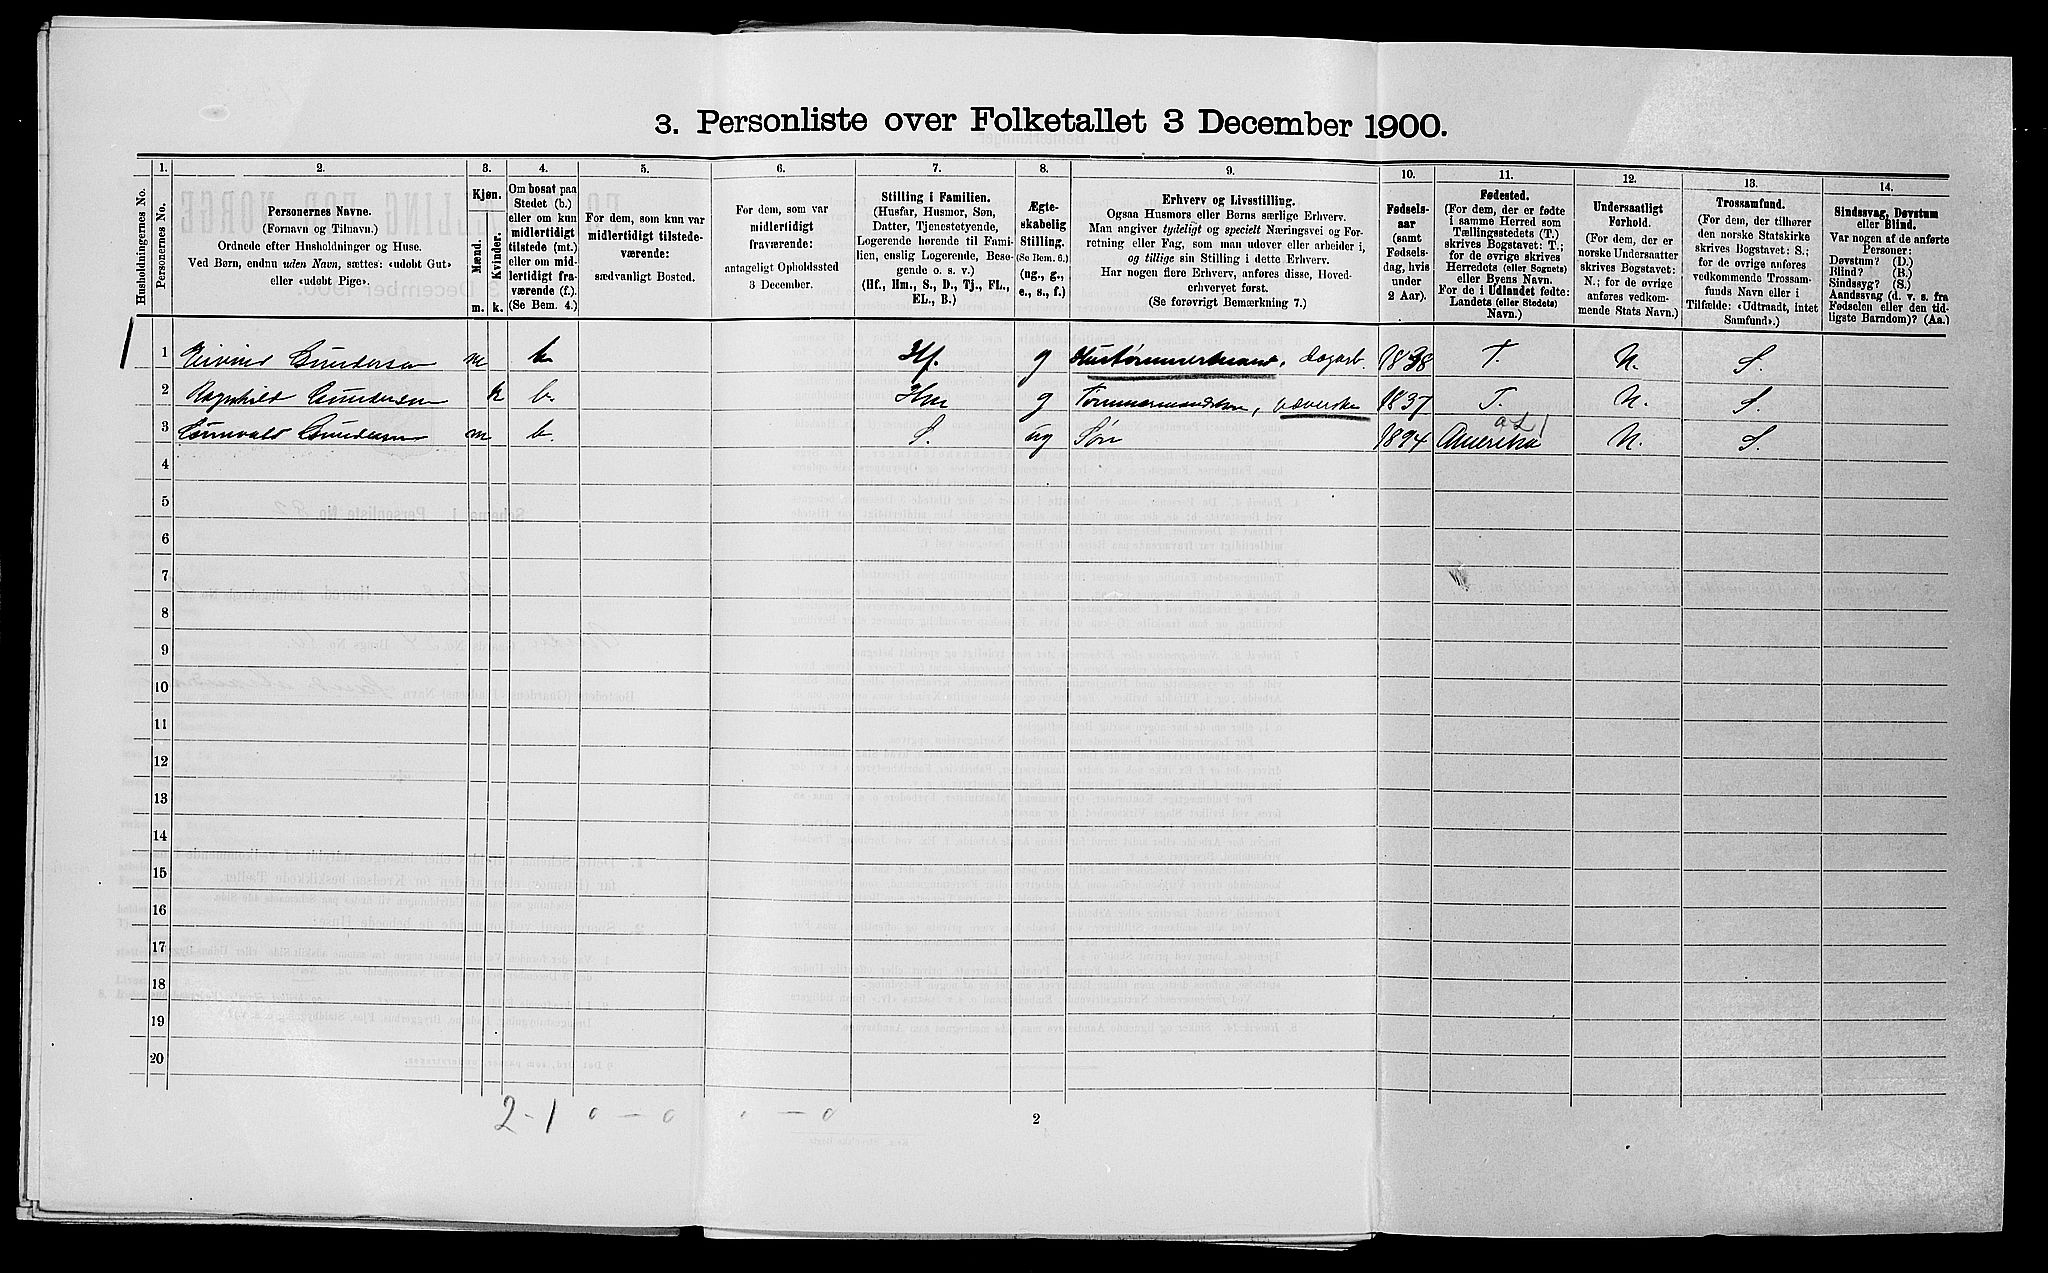 3. Personliste over Folketallet 3 December 1900.
Husholdningernes No.
1.
Personernes No.
2.
Personernes Navne.
(Fornavn og Tilnavn.)
Ordnede efter Husholdninger og Huse.
Ved Børn, endnu uden Navn, sættes: «udøbt Gut»
eller «udøbt Pige».
3.
Kjøn.
Mænd.
Kvinder.
m. k.
4.
Om bosat paa
Stedet (b.)
eller om kun
midlertidigt
tilstede (mt.)
eller om mid-
lertidigt fra-
værende (f.).
(Se Bem. 4.)
5.
For dem, som kun var
midlertidigt tilstede-
værende:
sædvanligt Bosted.
6.
For dem, som var
midlertidigt
fraværende:
antageligt Opholdssted
3 December.
7.
Stilling i Familien.
(Husfar, Husmor, Søn,
Datter, Tjenestetyende,
Logerende hørende til Fami-
lien, enslig Logerende, Besø-
gende o. s. v.)
(Hf., Hm., S., D., Tj., FL.,
EL., B.)
8.
Ægte-
skabelig
Stilling.
(Se Bem. 6.)
(ug., g.,
e., s., f.)
9.
Erhverv og Livsstilling.
Ogsaa Husmors eller Børns særlige Erhverv.
Man angiver tydeligt og specielt Næringsvei og For-
retning eller Fag, som man udover eller arbeider i,
og tillige sin Stilling i dette Erhverv.
Har nogen flere Erhverv, anføres disse, Hoved-
erhvervet først.
(Se forøvrigt Bemærkning 7.)
10.
Fødsels-
aar
(samt
Fødsels-
dag, hvis
under
2 Aar).
11.
Fødested.
(For dem, der er fødte
i samme Herred som
Tællingsstedets (T.)
skrives Bogstavet: T.;
for de øvrige skrives
Herredets (eller Sognets)
eller Byens Navn.
For de i Udlandet fødte:
Landets (eller Stedets)
Navn.)
12.
Undersaatligt
Forhold.
(For dem, der er
norske Undersaatter
skrives Bogstavet:
N.; for de øvrige
anføres vedkom-
mende Stats Navn.)
13.
Trossamfund.
(For dem, der tilhører
den norske Statskirke
skrives Bogstavet: S.;
for de øvrige anføres
vedkommende Trossam-
funds Navn eller i
Tilfælde: «Udtraadt, intet
Samfund».)
14.
Sindssvag, Døvstum
eller Blind.
Var nogen af de anførte
Personer:
Døvstum? (D.)
Blind? (B.)
Sindssyg? (S.)
Aandssvag (d. v. s. fra
Fødselen eller den tid-
ligste Barndom)? (Aa.)
1 1 Eivind Gundersen m b. Hf. g Hustømmermand, Dagarb. 1838 T. N. S.
2 Ragnhild Gundersen k b. Hm g Tømmermandskone, væverske 1837 T. N. S.
3 Gunvald Gundersen m b. S. ug Søn 1894 Amerika N. S.
4
5
6
7
8
9
10
11
12
13
14
15
16
17
18
19
20
2-1 0 - 0 0 - 0
2